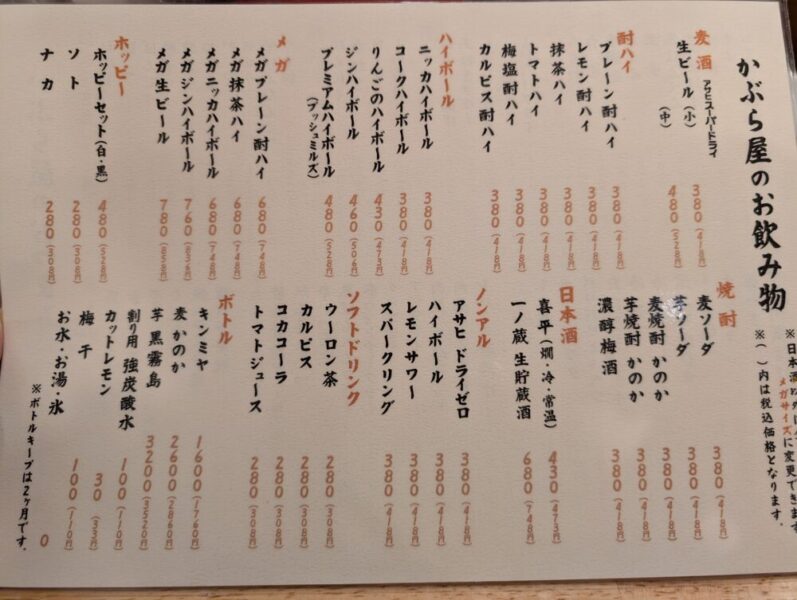 かぶら屋のお飲み物
※日本酒
メガサイズに変更できます
※( )内は税込価格となります。
麦酒
アサヒスーパードライ
生ビール (小) 380(418円)
(中) 480(528円)
酎ハイ
プレーン酎ハイ 380(418円)
レモン酎ハイ 380(418円)
抹茶ハイ 380(418円)
トマトハイ 380(418円)
梅塩酎ハイ 380(418円)
カルピス酎ハイ 380(418円)
ハイボール
ニッカハイボール 380(418円)
コークハイボール 380(418円)
りんごのハイボール 430(473円)
ジンハイボール 460(506円)
プレミアムハイボール 480(528円)
(ブッシュミルズ)
メガ
メガプレーン酎ハイ 680(748円)
メガ抹茶ハイ 680(748円)
メガニッカハイボール 680(748円)
メガジンハイボール 760(836円)
メガ生ビール 780(858円)
ホッピー
ホッピーセット(白・黒) 480(528円)
ソト 280(308円)
ナカ 280(308円)
焼酎
麦ソーダ 380(418円)
芋ソーダ 380(418円)
麦焼酎 かのか 380(418円)
芋焼酎 かのか 380(418円)
濃醇梅酒 380(418円)
日本酒
喜平(燗・冷・常温) 430(473円)
一ノ蔵 生貯蔵酒 680(748円)
ノンアル
アサヒ ドライゼロ 380(418円)
ハイボール 380(418円)
レモンサワー 380(418円)
スパークリング 380(418円)
ソフトドリンク
ウーロン茶 280(308円)
カルピス 280(308円)
コカコーラ 280(308円)
トマトジュース 280(308円)
ボトル
キンミヤ 1600(1760円)
麦 かのか 2600(2860円)
芋 黒霧島 3200(3520円)
割り用 強炭酸水 100(110円)
カットレモン 30(33円)
梅干 100(110円)
お水・お湯・氷 0
※ボトルキープは2ヶ月です。